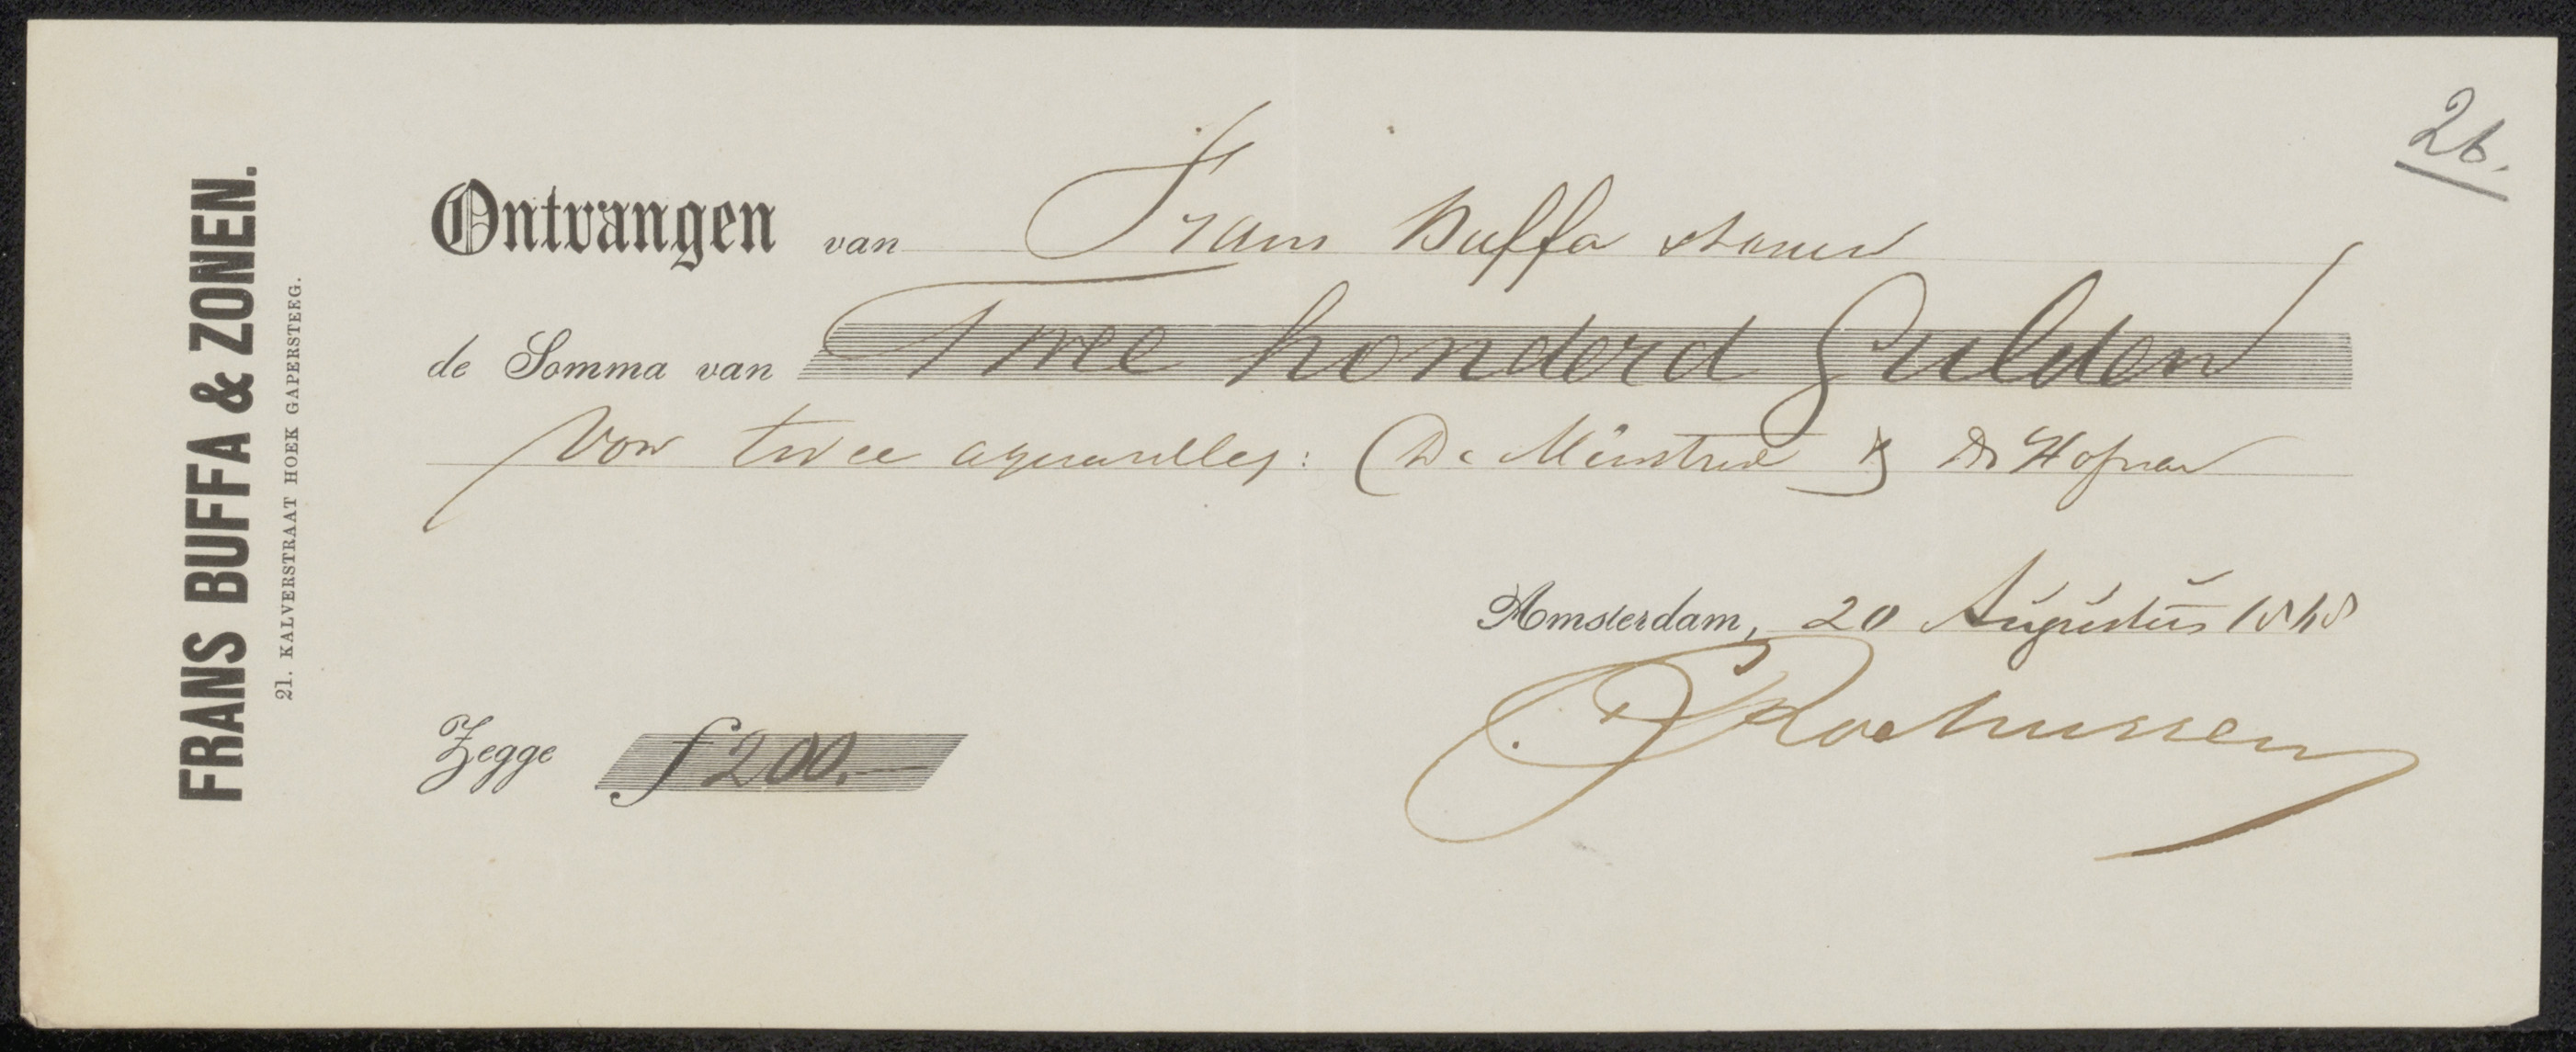 26.
FRANS BUFFA & ZONEN.
21. KALVERSTRAAT HOEK GAPERSTEEG.
Ontvangen van Frans Buffa & Zonen
de Somma van Twee honderd Gulden
Voor twee aquarelles: (De Minstreel & De Hofnar
Amsterdam, 20 Augustus
Zegge f 200.—
CRochussen